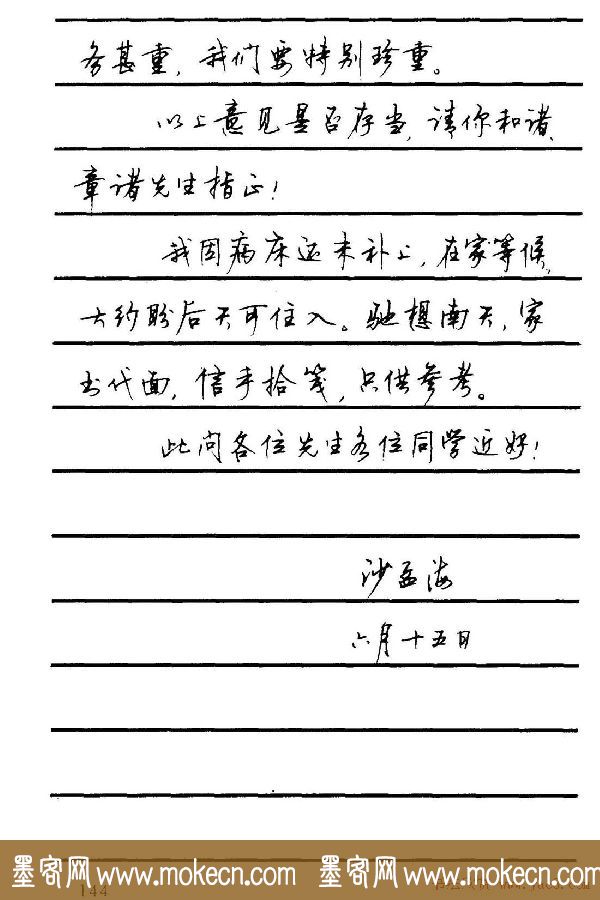 务甚重，我们要特别珍重。
以上意见是否存当，请你和诸、
章诸先生指正！
我因病床还未补上，在家等候，
大约盼后天可住入。驰想南天，家
书代面，信手拾笺，只供参考。
此问各位先生各位同学近好！
沙孟海
六月十五日
墨客网 www.mokecn.com 墨客网 www.mokecn.com
144